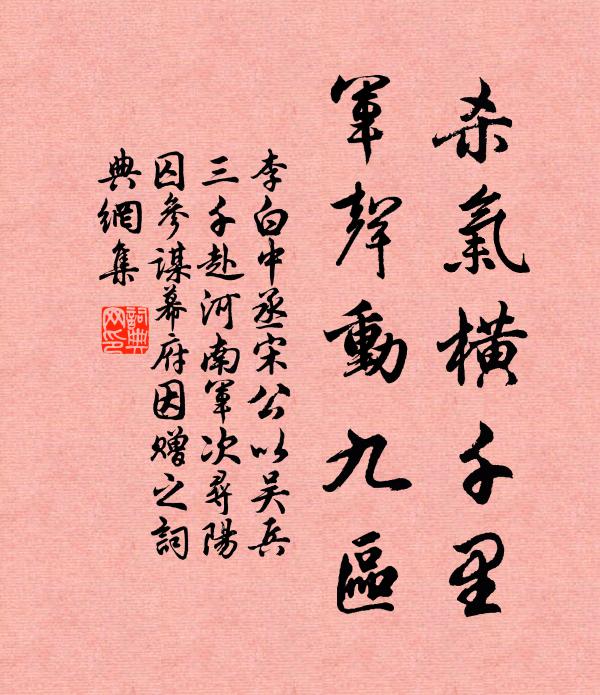 杀氣橫千里
軍聲動九區
李白中丞宋公以吴兵
三千赴河南軍次尋陽
囚參謀幕府因贈之詞
典網集
詞典
网印